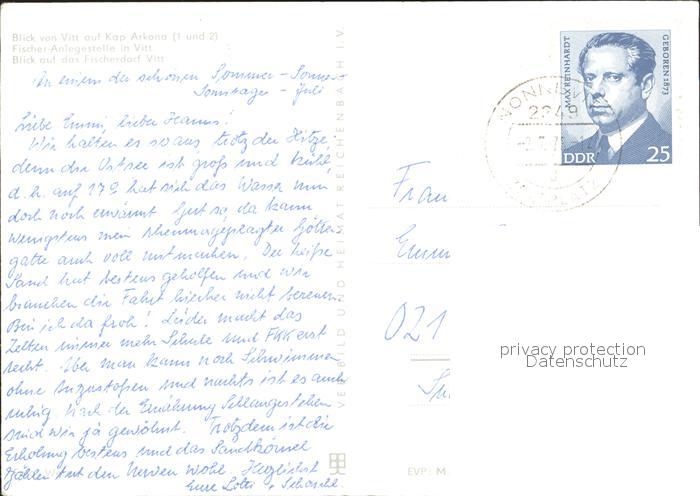 Blick von Vitt auf Kap Arkona (1 und 2)
Fischer-Anlegestelle in Vitt
Blick auf das Fischerdorf Vitt
An einem der schönen Sommer-Sonne-
Sonntage - Juli
Liebe Emmi, lieber Hanns!
Wir halten es so aus, trotz der Hitze,
denn die Ostsee ist groß und kühl,
d.h. auf 17° hat sich das Wasser nun
doch noch erwärmt. Gut so, da kann
wenigstens mein rheumageplagter Götter-
gatte auch voll mitmachen. Der heiße
Sand hat bestens geholfen und wir
brauchen die Fahrt hierher nicht bereuen.
Bin ich da froh! Leider macht das
Zelten immer mehr Schule und FKK erst
recht. Aber man kann noch Schwimmen
ohne Anzustoßen und nachts ist es auch
ruhig. Nach der Ernährung Schlangestehen
sind wir ja gewöhnt. Trotzdem ist die
Erholung bestens und das Sandkörnel
zählen tut den Nerven wohl. Herzlichst
Eure Lotte +
VERLAG BILD UND HEIMAT REICHENBACH I.V.
EVP: M
MAX REINHARDT
GEBOREN 1873
DDR 25
2349
Frau
Emm
021
privacy protection
Datenschutz